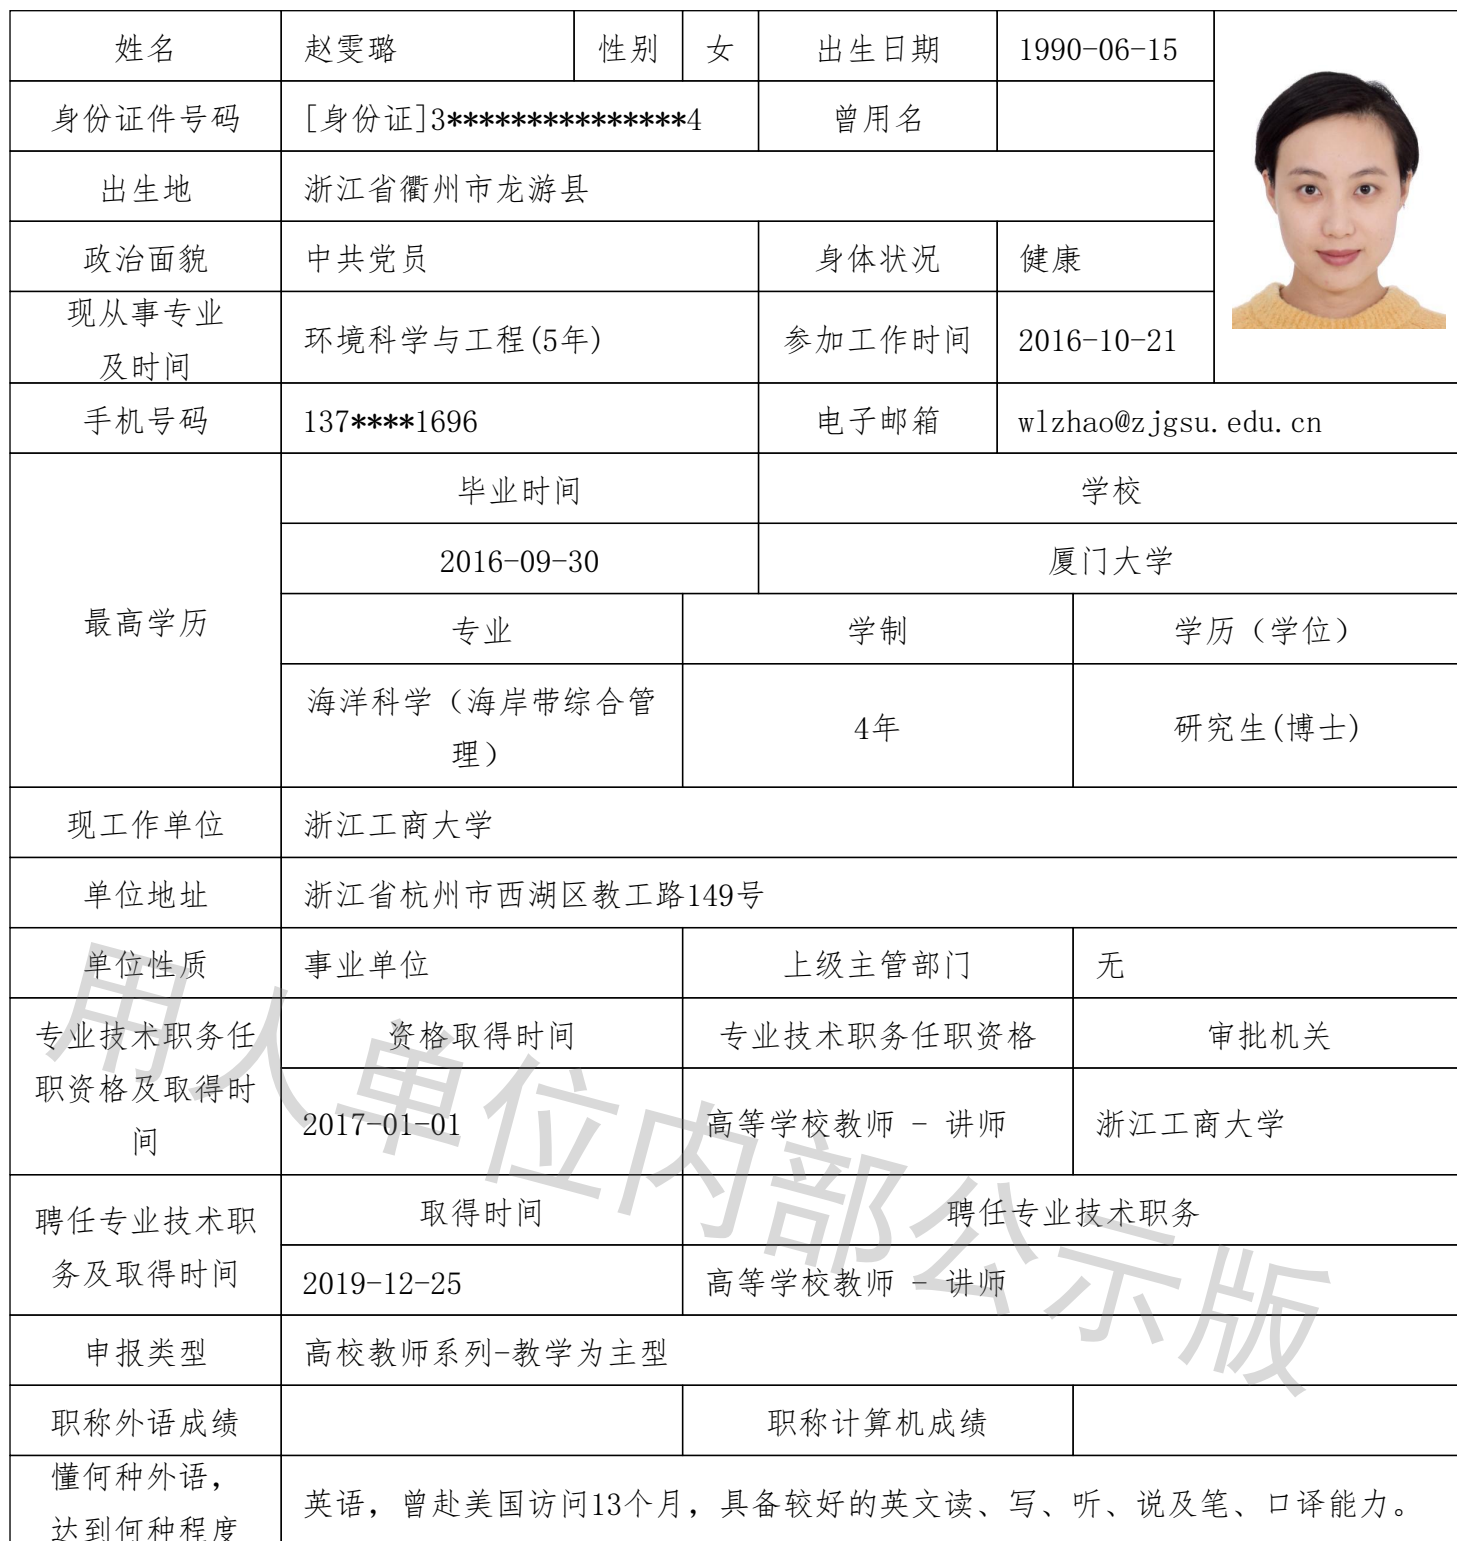 姓名 赵雯璐 性别 女 出生日期 1990-06-15
身份证件号码 [身份证]3***************4 曾用名
出生地 浙江省衢州市龙游县
政治面貌 中共党员 身体状况 健康
现从事专业
及时间
环境科学与工程(5年) 参加工作时间 2016-10-21
手机号码 137****1696 电子邮箱 wlzhao@zjgsu.edu.cn
最高学历
毕业时间 学校
2016-09-30 厦门大学
专业 学制 学历（学位）
海洋科学（海岸带综合管
理）
4年 研究生(博士)
现工作单位 浙江工商大学
单位地址 浙江省杭州市西湖区教工路149号
单位性质 事业单位 上级主管部门 无
专业技术职务任
职资格及取得时
间
资格取得时间 专业技术职务任职资格 审批机关
2017-01-01 高等学校教师 - 讲师 浙江工商大学
聘任专业技术职
务及取得时间
取得时间 聘任专业技术职务
2019-12-25 高等学校教师 - 讲师
申报类型 高校教师系列-教学为主型
职称外语成绩 职称计算机成绩
懂何种外语，
达到何种程度
英语，曾赴美国访问13个月，具备较好的英文读、写、听、说及笔、口译能力。
用人单位内部公示版